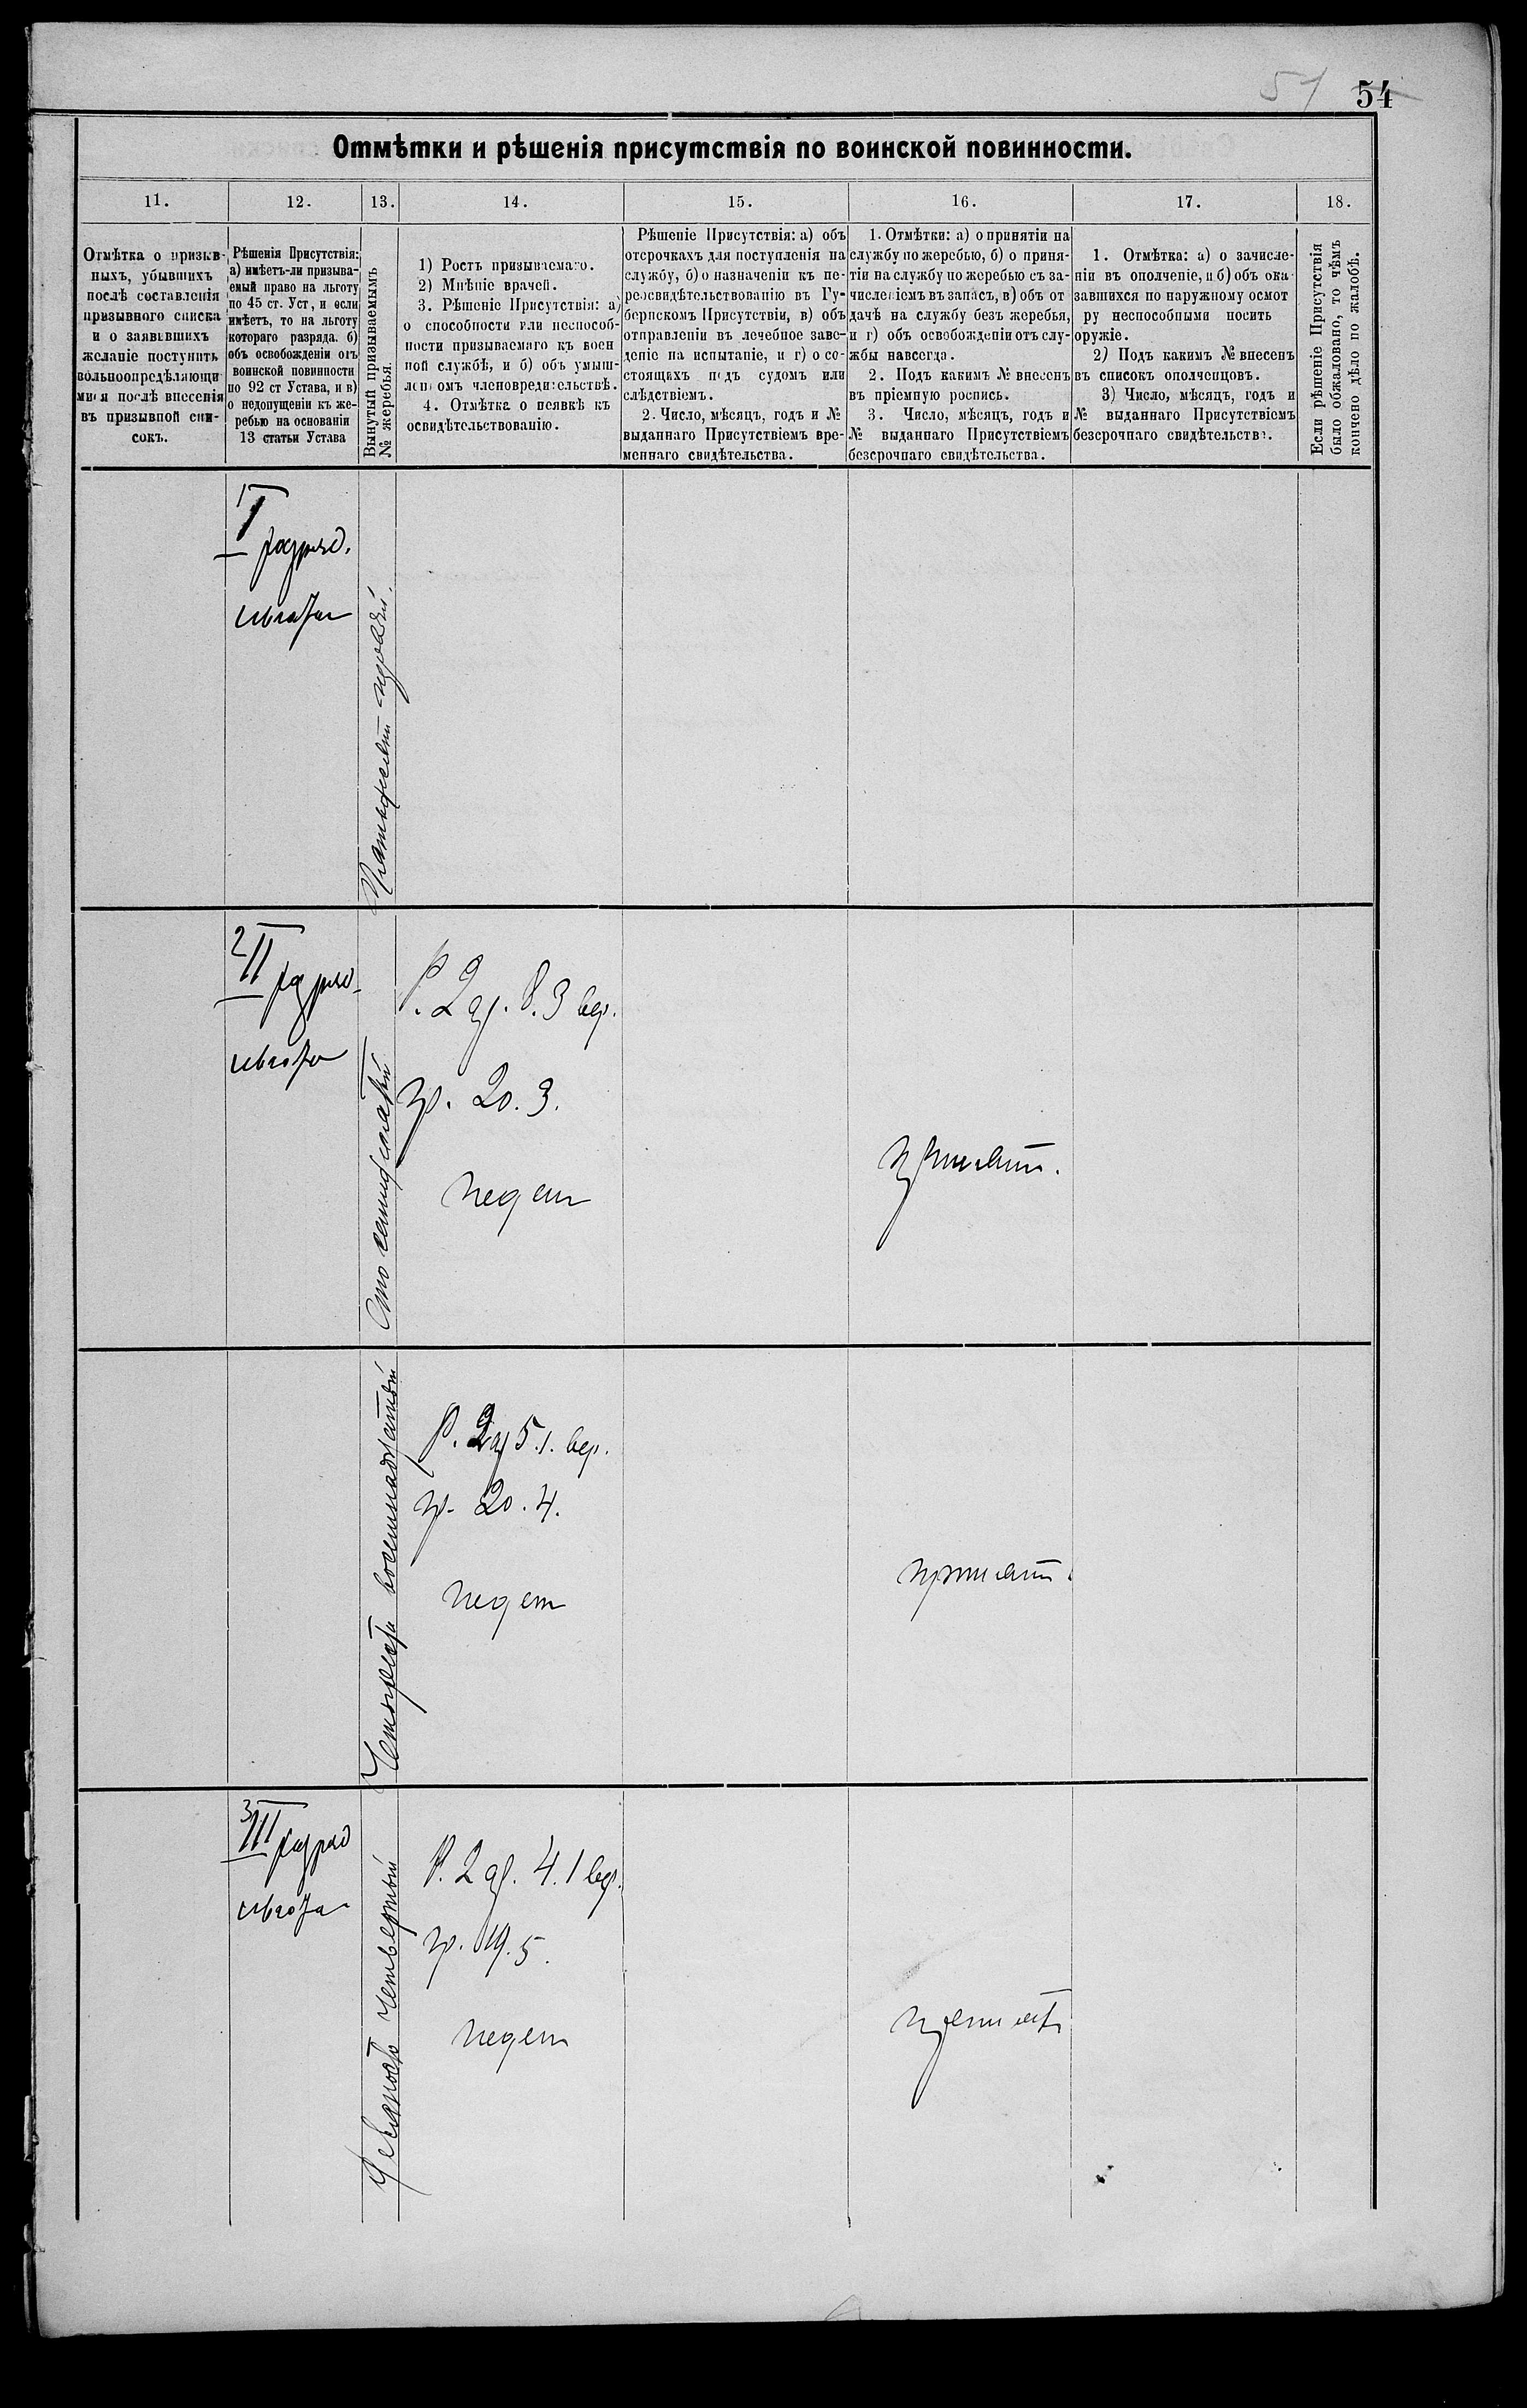 51 54
Отмѣтки и рѣшенія присутствія по воинской повинности.
11. 12. 13. 14. 15. 16. 17. 18.
Отмѣтка о призыв-
ныхъ, убывшихъ
послѣ составленія
призывного списка
и о заявившихъ
желаніе поступить
вольноопредѣляющи
мися послѣ внесенія
въ призывной спи-
сокъ.
Рѣшенія Присутствія:
а) имѣетъ-ли призыва-
емый право на льготу
по 45 ст. Уст, и если
имѣетъ, то на льготу
котораго разряда. б)
объ освобожденіи отъ
воинской повинности
по 92 ст Устава, и в)
о недопущеніи къ же-
ребью на основаніи
13 статьи Устава
Вынутый призываемымъ
№ жеребья.
1) Ростъ призываемаго.
2) Мнѣніе врачей.
3. Рѣшеніе Присутствія: а)
о способности или неспособ-
ности призываемаго къ воен
ной службѣ, и б) объ умыш-
леномъ членовредительствѣ.
4. Отмѣтка о неявкѣ къ
освидѣтельствованію.
Рѣшеніе Присутствія: а) объ
отсрочкахъ для поступленія на
службу, б) о назначеніи къ пе-
реосвидѣтельствованію въ Гу-
бернскомъ Присутствіи, в) объ
отправленіи въ лечебное заве-
деніе на испытаніе, и г) о со-
стоящихъ подъ судомъ или
слѣдствіемъ.
2. Число, мѣсяцъ, годъ и №
выданнаго Присутствіемъ вре-
меннаго свидѣтельства.
1. Отмѣтки: а) о принятіи на
службу по жеребью, б) о приня-
тіи на службу по жеребью съ за-
численіемъ въ запасъ, в) объ от
дачѣ на службу безъ жеребья,
и г) объ освобожденіи отъ слу-
жбы навсегда.
2. Подъ какимъ № внесенъ
въ пріемную роспись.
3. Число, мѣсяцъ, годъ и
№ выданнаго Присутствіемъ
безсрочнаго свидѣтельства.
1. Отмѣтка: а) о зачисле-
ніи въ ополченіе, и б) объ ока
завшихся по наружному осмот
ру неспособными носить
оружіе.
2) Подъ какимъ № внесенъ
въ списокъ ополченцовъ.
3) Число, мѣсяцъ, годъ и
№ выданнаго Присутствіемъ
безсрочнаго свидѣтельства.
Если рѣшеніе Присутствія
было обжаловано, то чѣмъ
кончено дѣло по жалобѣ.
1
I разряд.
льгота
2
II разряд
льгота
Р. 2 ар. 8.3 вер.
гр. 20.3.
годен
принят.
Четыреста восемнадцатый
Р. 2 ар 5.1. вер.
гр. 20.4.
годен
принят.
3
III разряд
льгота
Девяносто четвертый
Р. 2 ар. 4.1 вер.
гр. 19.5.
годен
принят